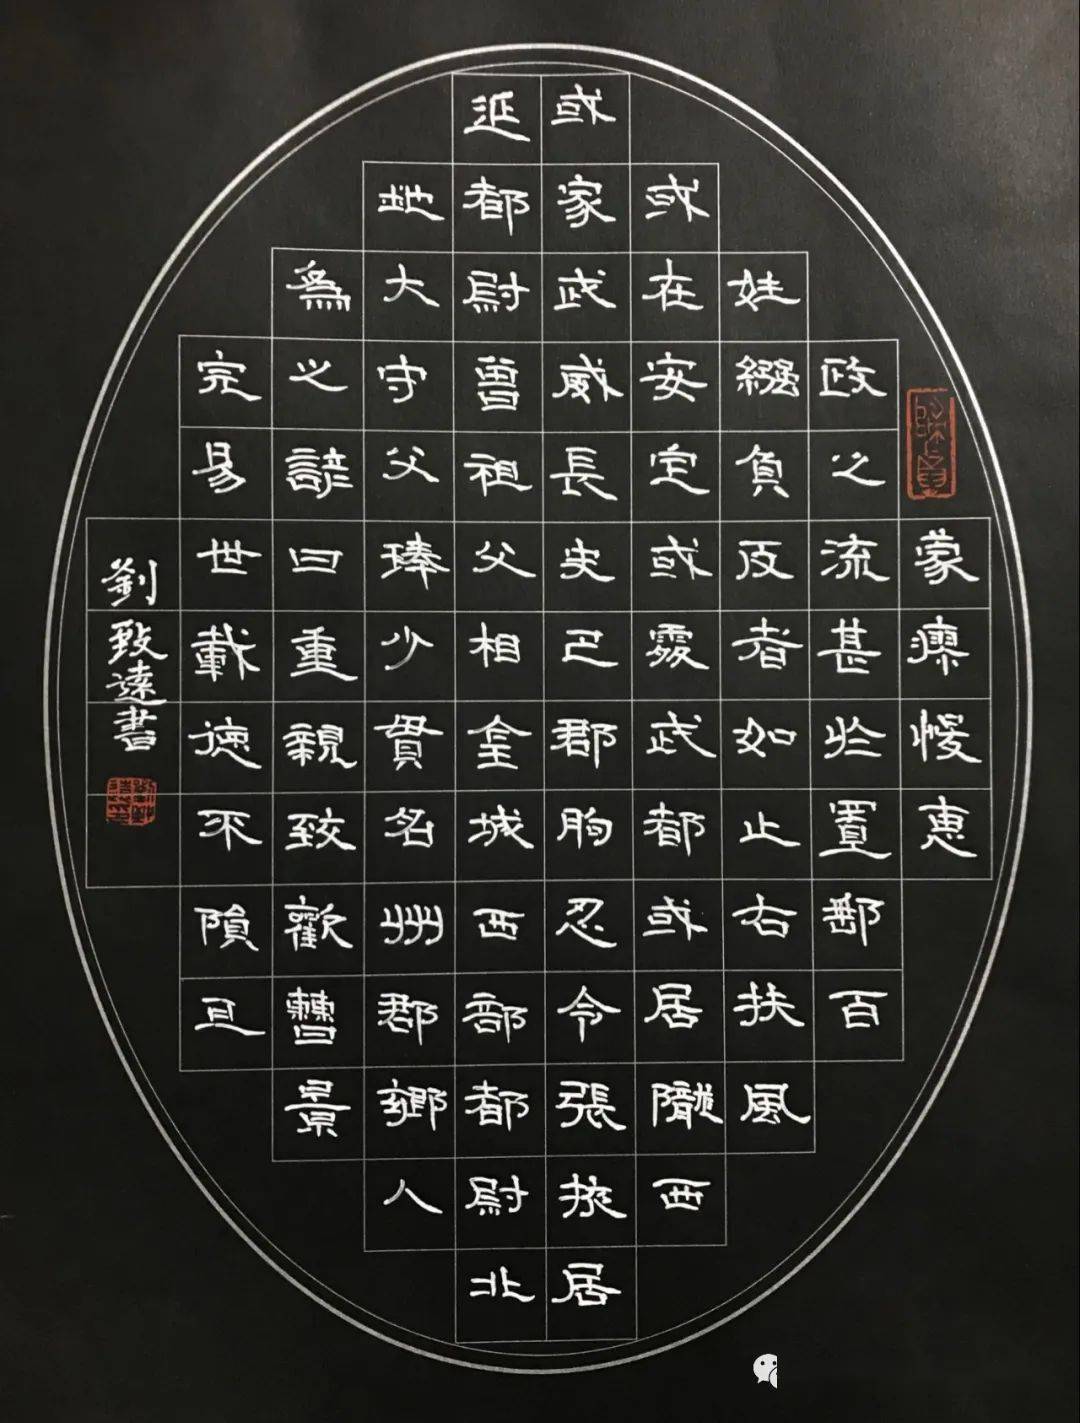 蒙瘳悛惠
政之流甚於置郵百
姓繦負反者如止右扶風
或在安定或處武都或居隴西
或家武威長史巴郡朐忍令張掖居
延都尉曾祖父相金城西部都尉北
地大守父琫少貫名州郡鄉人
為之諺曰重親致歡曹景
完易世載德不隕且
劉致達書